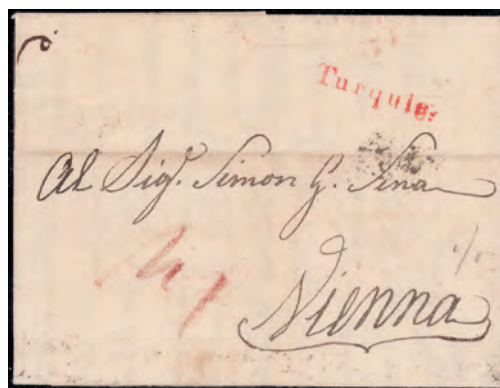 Turquie.
Al Sig.r Simon G. Sina
Vienna